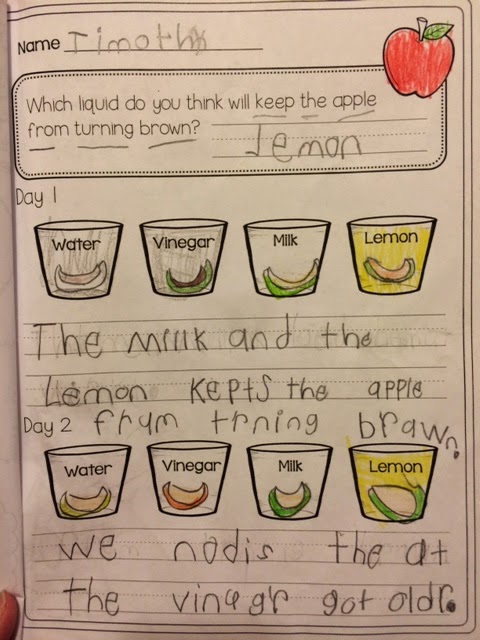 Name Timothy
Which liquid do you think will keep the apple
from turning brown? lemon
Day 1
Water Vinegar Milk Lemon
The millk and the
Lemon kepts the apple
Day 2 frum trning brawn.
Water Vinegar Milk Lemon
we nodis the at
the vinegr got oldr.